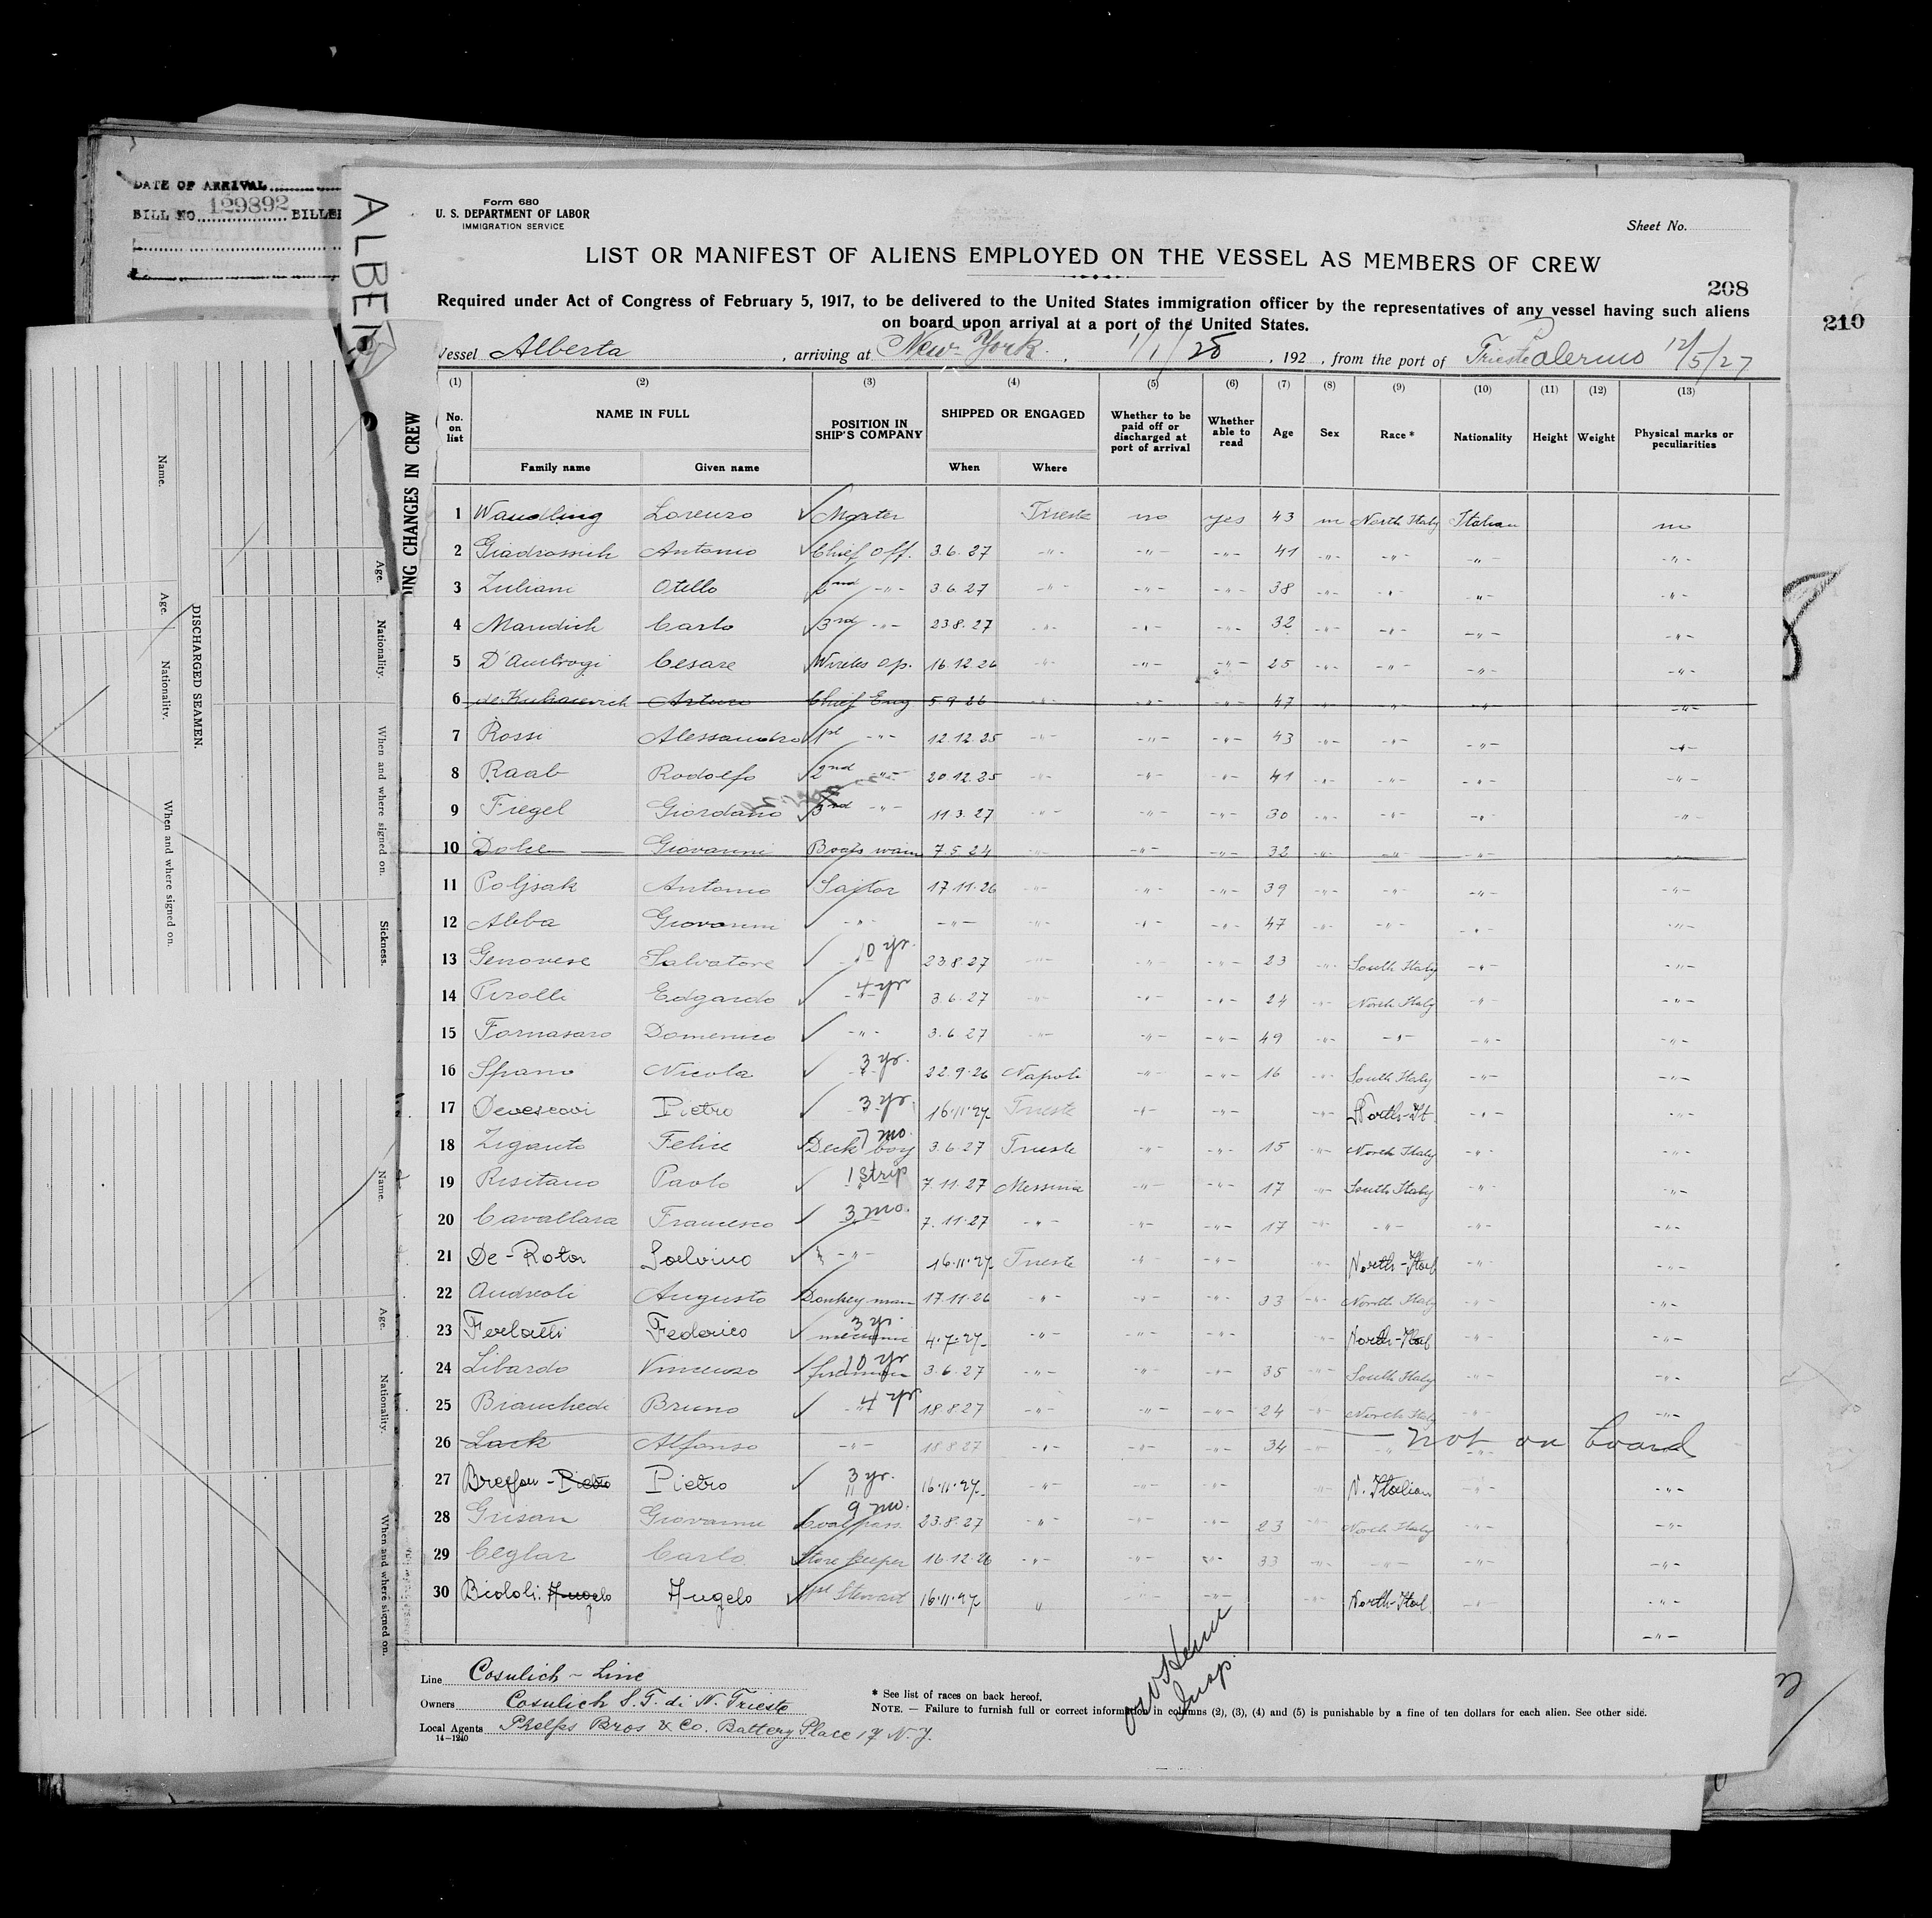 DATE OF ARRIVAL
BILL NO. 129892 BILLE
ALBER
Form 680
U. S. DEPARTMENT OF LABOR
IMMIGRATION SERVICE
Sheet No.
LIST OR MANIFEST OF ALIENS EMPLOYED ON THE VESSEL AS MEMBERS OF CREW
208
210
Required under Act of Congress of February 5, 1917, to be delivered to the United States immigration officer by the representatives of any vessel having such aliens
on board upon arrival at a port of the United States.
Vessel Alberta, arriving at New York, 1/1/28, 192 , from the port of Trieste Palermo 12/5/27
(1) (2) (3) (4) (5) (6) (7) (8) (9) (10) (11) (12) (13)
No. on list NAME IN FULL POSITION IN SHIP'S COMPANY SHIPPED OR ENGAGED Whether to be paid off or discharged at port of arrival Whether able to read Age Sex Race * Nationality Height Weight Physical marks or peculiarities
Family name Given name When Where
1 Wandling Lorenzo Master Trieste no yes 43 m North Italy Italian no
2 Giadrossich Antonio Chief Off. 3.6.27 -"- -"- -"- 41 -"- -"- -"- -"-
3 Zuliani Otello 2nd -"- 3.6.27 -"- -"- -"- 38 -"- -"- -"- -"-
4 Mandich Carlo 3rd -"- 23.8.27 -"- -"- -"- 32 -"- -"- -"- -"-
5 D'Ambrogi Cesare Wireles Op. 16.12.26 -"- -"- -"- 25 -"- -"- -"- -"-
6 Arturo Chief Eng 5.9.26 -"- -"- -"- 47 -"- -"- -"- -"-
7 Rossi Alessandro 1st -"- 12.12.25 -"- -"- -"- 43 -"- -"- -"- -"-
8 Raab Rodolfo 2nd -"- 20.12.25 -"- -"- -"- 41 -"- -"- -"- -"-
9 Fiegel Giordano 3rd -"- 11.3.27 -"- -"- -"- 30 -"- -"- -"- -"-
10 Dolce Giovanni Boats wain 7.5.24 -"- -"- -"- 32 -"- -"- -"- -"-
11 Poljsak Antonio Sailor 17.11.26 -"- -"- -"- 39 -"- -"- -"- -"-
12 Abba Giovanni -"- -"- -"- -"- -"- 47 -"- -"- -"- -"-
13 Genovese Salvatore 10 yr. 23.8.27 -"- -"- -"- 23 -"- South Italy -"- -"-
14 Pirolli Edgardo -"- 4 yr 3.6.27 -"- -"- -"- 24 -"- North Italy -"- -"-
15 Fornasaro Domenico -"- 3.6.27 -"- -"- -"- 49 -"- -"- -"- -"-
16 Spano Nicola 3 yr. 22.9.26 Napoli -"- -"- 16 -"- South Italy -"- -"-
17 Devescovi Pietro 3 yr. 16.11.27 Trieste -"- -"- -"- North-It. -"- -"-
18 Ziganto Felice Deck boy 7 mo. 3.6.27 Trieste -"- -"- 15 -"- North Italy -"- -"-
19 Risitano Paolo 1st trip 7.11.27 Messina -"- -"- 17 -"- South Italy -"- -"-
20 Cavallara Francesco 3 mo. 7.11.27 -"- -"- -"- 17 -"- -"- -"- -"-
21 De-Rota Salvino -"- 16.11.27 Trieste -"- -"- -"- North-Ital -"- -"-
22 Andreoli Augusto Donkey man 17.11.26 -"- -"- -"- 33 -"- North Italy -"- -"-
23 Ferlatti Federico 3 yr. 4.7.27 -"- -"- -"- -"- North-Ital -"- -"-
24 Libardo Vincenzo fireman 10 yr 3.6.27 -"- -"- -"- 35 -"- South Italy -"- -"-
25 Bianchedi Bruno -"- 4 yr 18.8.27 -"- -"- -"- 24 -"- North Italy -"- -"-
26 Lack Alfonso -"- 18.8.27 -"- -"- -"- 34 -"- -"- not on board
27 Pietro Pietro 3 yr. 16.11.27 -"- -"- -"- -"- N. Italian -"- -"-
28 Grisan Giovanni Coal pass. 9 mo. 23.8.27 -"- -"- -"- 23 -"- North Italy -"- -"-
29 Ceglar Carlo Store keeper 16.12.26 -"- -"- -"- 33 -"- -"- -"- -"-
30 Bidoli Angelo Angelo 1st Stewart 16.11.27 " -"- -"- -"- North-Ital. -"- -"-
-"-
Line Cosulich - Line
Owners Cosulich S.T. di N. Trieste
Local Agents Phelps Bros & Co. Battery Place 17 N.Y.
14—1240
* See list of races on back hereof.
NOTE. — Failure to furnish full or correct information in columns (2), (3), (4) and (5) is punishable by a fine of ten dollars for each alien. See other side.
Insp.
DING CHANGES IN CREW
DISCHARGED SEAMEN.
Name.
Age.
Nationality.
When and where signed on.
Age.
Nationality.
When and where signed on.
Sickness.
Name.
Age.
Nationality.
When and where signed on.